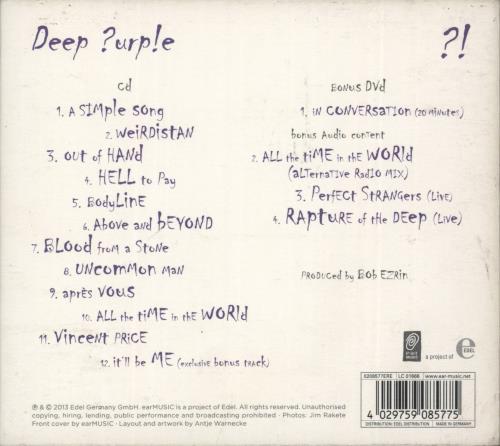 Deep ?urp!e
?!
CD
1. A Simple Song
2. Weirdistan
3. Out of Hand
4. Hell to Pay
5. Bodyline
6. Above and Beyond
7. Blood from a Stone
8. Uncommon Man
9. Après Vous
10. All the Time in the World
11. Vincent Price
12. It'll be Me (exclusive bonus track)
BONUS DVD
1. In Conversation (20 minutes)
bonus Audio content
2. All the Time in the World
(Alternative Radio Mix)
3. Perfect Strangers (Live)
4. Rapture of the Deep (Live)
Produced by Bob Ezrin
a project of
EDEL
0208577ERE
LC 01666
www.ear-music.net
4 029759 085775
DISTRIBUTION: EDEL DISTRIBUTION
MADE IN GERMANY
℗ & © 2013 Edel Germany GmbH. earMUSIC is a project of Edel. All rights reserved. Unauthorised
copying, hiring, lending, public performance and broadcasting prohibited. · Photos: Jim Rakete
Front cover by earMUSIC · Layout and artwork by Antje Warnecke